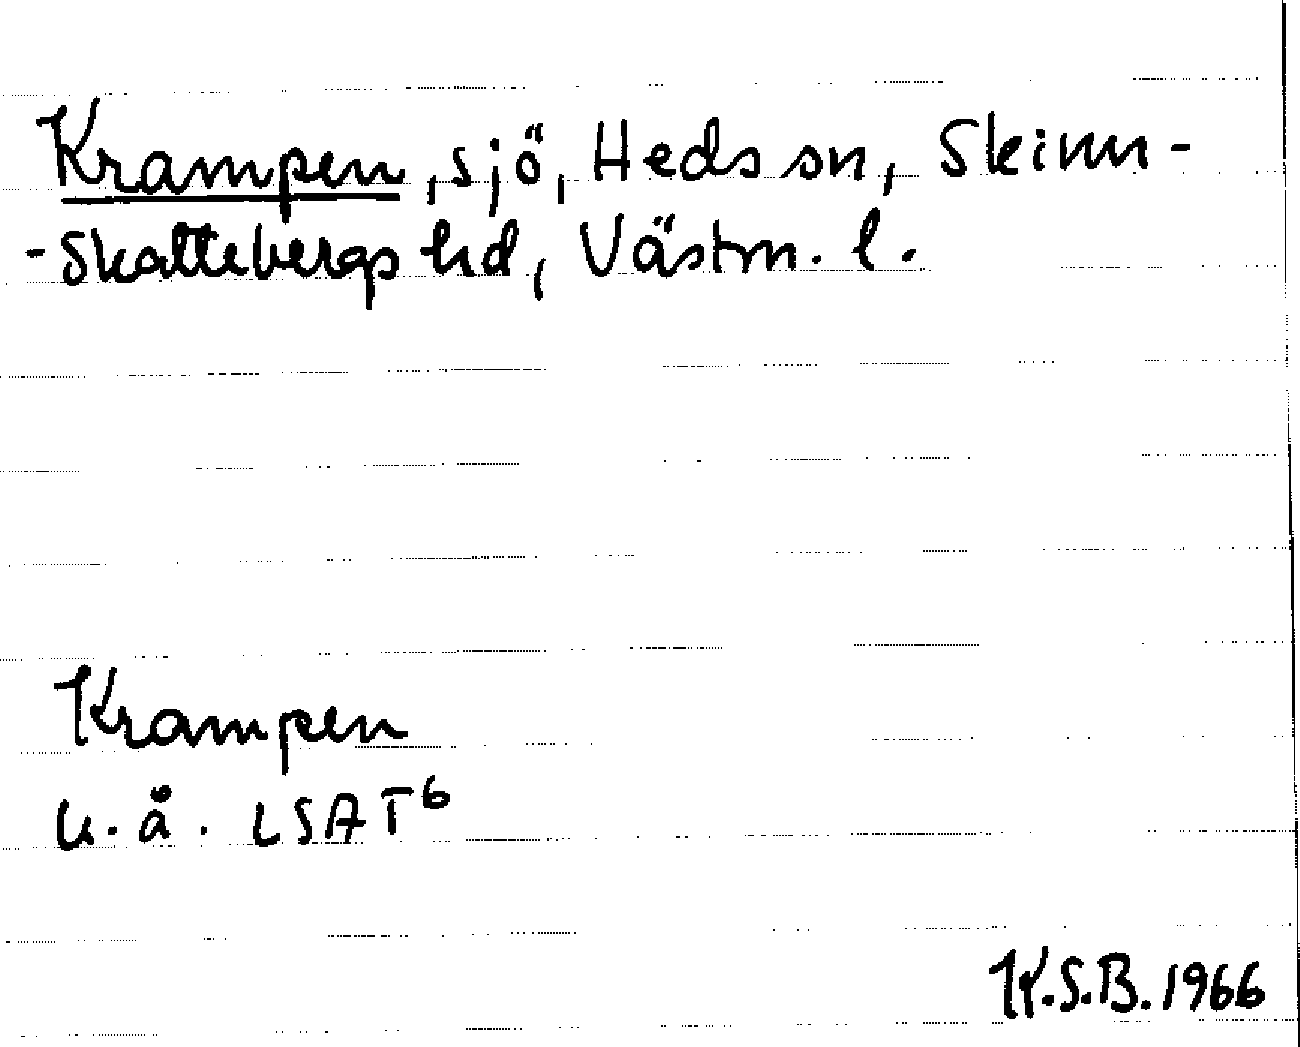 Krampen, sjö, Heds sn, Skinn-
-Skattebergs hd, Västm. l.
Krampen
u. å. LSA T6
K.S.B. 1966